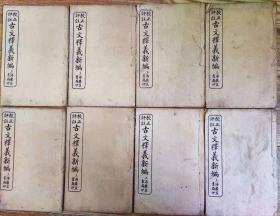 校正評註古文釋義新編
校正評註古文釋義新編
校正評註古文釋義新編
校正評註古文釋義新編
校正評註古文釋義新編
校正評註古文釋義新編
校正評註古文釋義新編
校正評註古文釋義新編